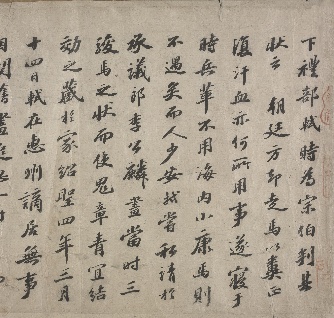 下禮部軾時為宗伯判其
狀云 朝廷方却走馬以糞正
復汗血亦何所用事遂寢于
時兵革不用海内小康馬則
不遇矣而人少安軾嘗私請於
承議郎李公麟畫當時三
駿馬之狀而使鬼章青宜結
効之藏於家紹聖四年三月
十四日軾在惠州謫居無事